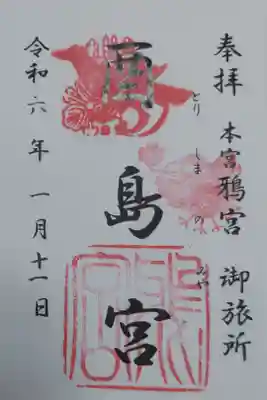 奉拝 本宮鴉宮 御旅所
酉島宮
とりしまのみや
令和六年一月十一日